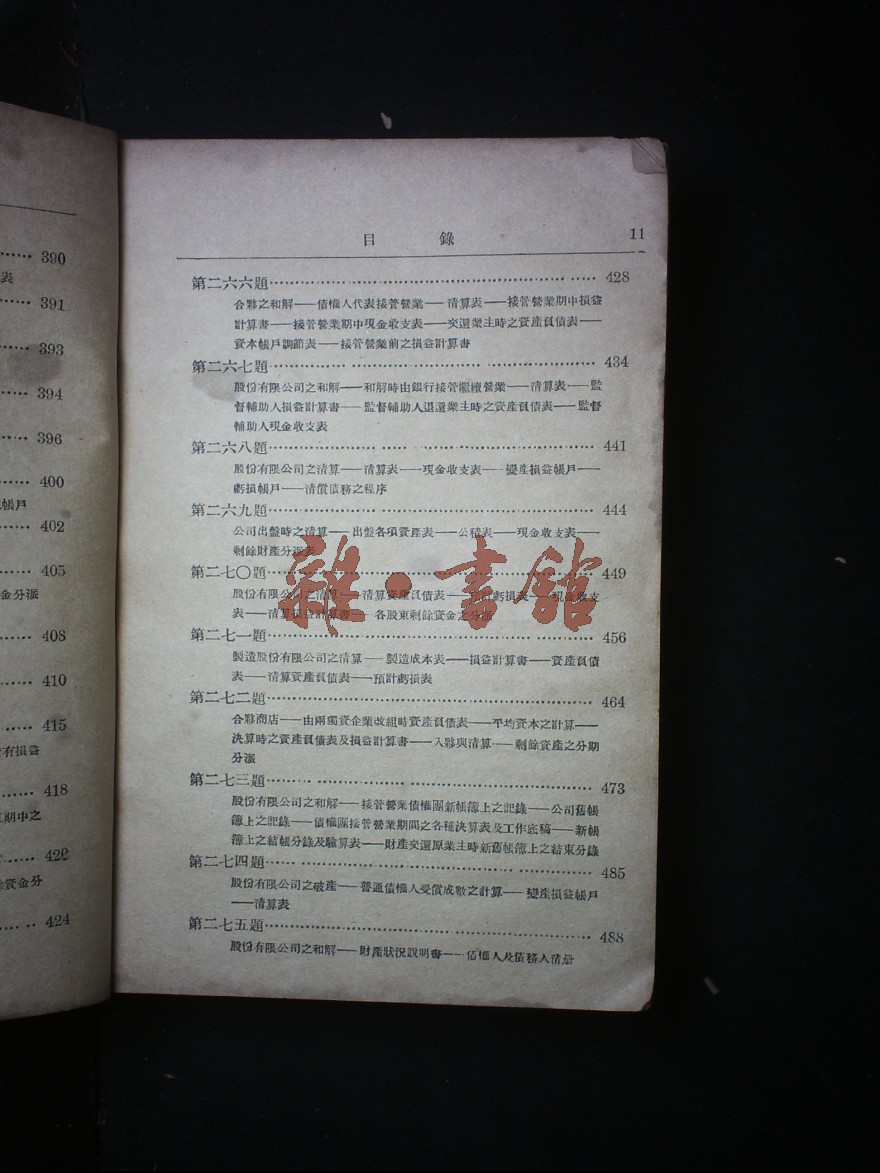 390
表
391
393
394
396
400
帳戶
402
405
金分派
408
410
415
有損益
418
期中之
420
餘資金分
424
目 錄 11
第二六六題 428
合夥之和解——債權人代表接管營業——清算表——接管營業期中損益
計算書——接管營業期中現金收支表——交還業主時之資產負債表——
資本帳戶調節表——接管營業前之損益計算書
第二六七題 434
股份有限公司之和解——和解時由銀行接管繼續營業——清算表——監
督輔助人損益計算書——監督輔助人退還業主時之資產負債表——監督
輔助人現金收支表
第二六八題 441
股份有限公司之清算——清算表——現金收支表——變產損益帳戶——
虧損帳戶——清償債務之程序
第二六九題 444
公司出盤時之清算——出盤各項資產表——公積表——現金收支表——
剩餘財產分派表
第二七〇題 449
股份有限公司之清算——清算資產負債表——預計虧損表——現金收支
表——清算損益計算書——各股東剩餘資金之分派
第二七一題 456
製造股份有限公司之清算——製造成本表——損益計算書——資產負債
表——清算資產負債表——預計虧損表
第二七二題 464
合夥商店——由兩獨資企業改組時資產負債表——平均資本之計算——
決算時之資產負債表及損益計算書——入夥與清算——剩餘資產之分期
分派
第二七三題 473
股份有限公司之和解——接管營業債權團新帳簿上之記錄——公司舊帳
簿上之記錄——債權團接管營業期間之各種決算表及工作底稿——新帳
簿上之結帳分錄及驗算表——財產交還原業主時新舊帳簿上之結束分錄
第二七四題 485
股份有限公司之破產——普通債權人受償成數之計算——變產損益帳戶
——清算表
第二七五題 488
股份有限公司之和解——財產狀況說明書——債權人及債務人清册
雜·書館